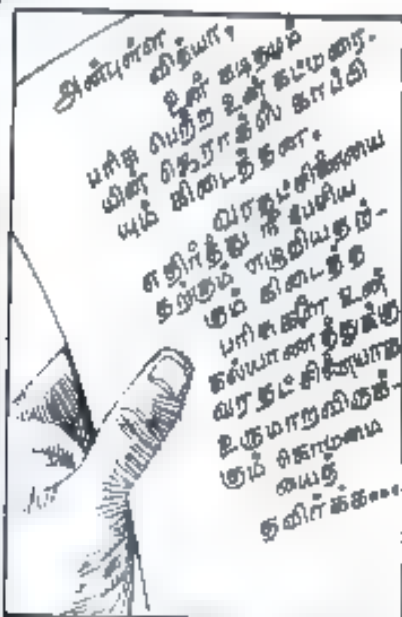 அன்புள்ள
வித்யா,
உன் கடிதமும்
பரிசு பெற்ற உன் கட்டுரை-
யின் ஜெராக்ஸ் காப்பி
யும் கிடைத்தன.
வரதட்சிணையை
எதிர்த்து நீ பேசிய
தற்கும் எழுதியதற்-
கும் கிடைத்த
பரிசுகளே உன்
கல்யாணத்துக்கு
வரதட்சிணையாக
உருமாறவிருக்-
கும் கொடுமை
யைத்
தவிர்க்க...